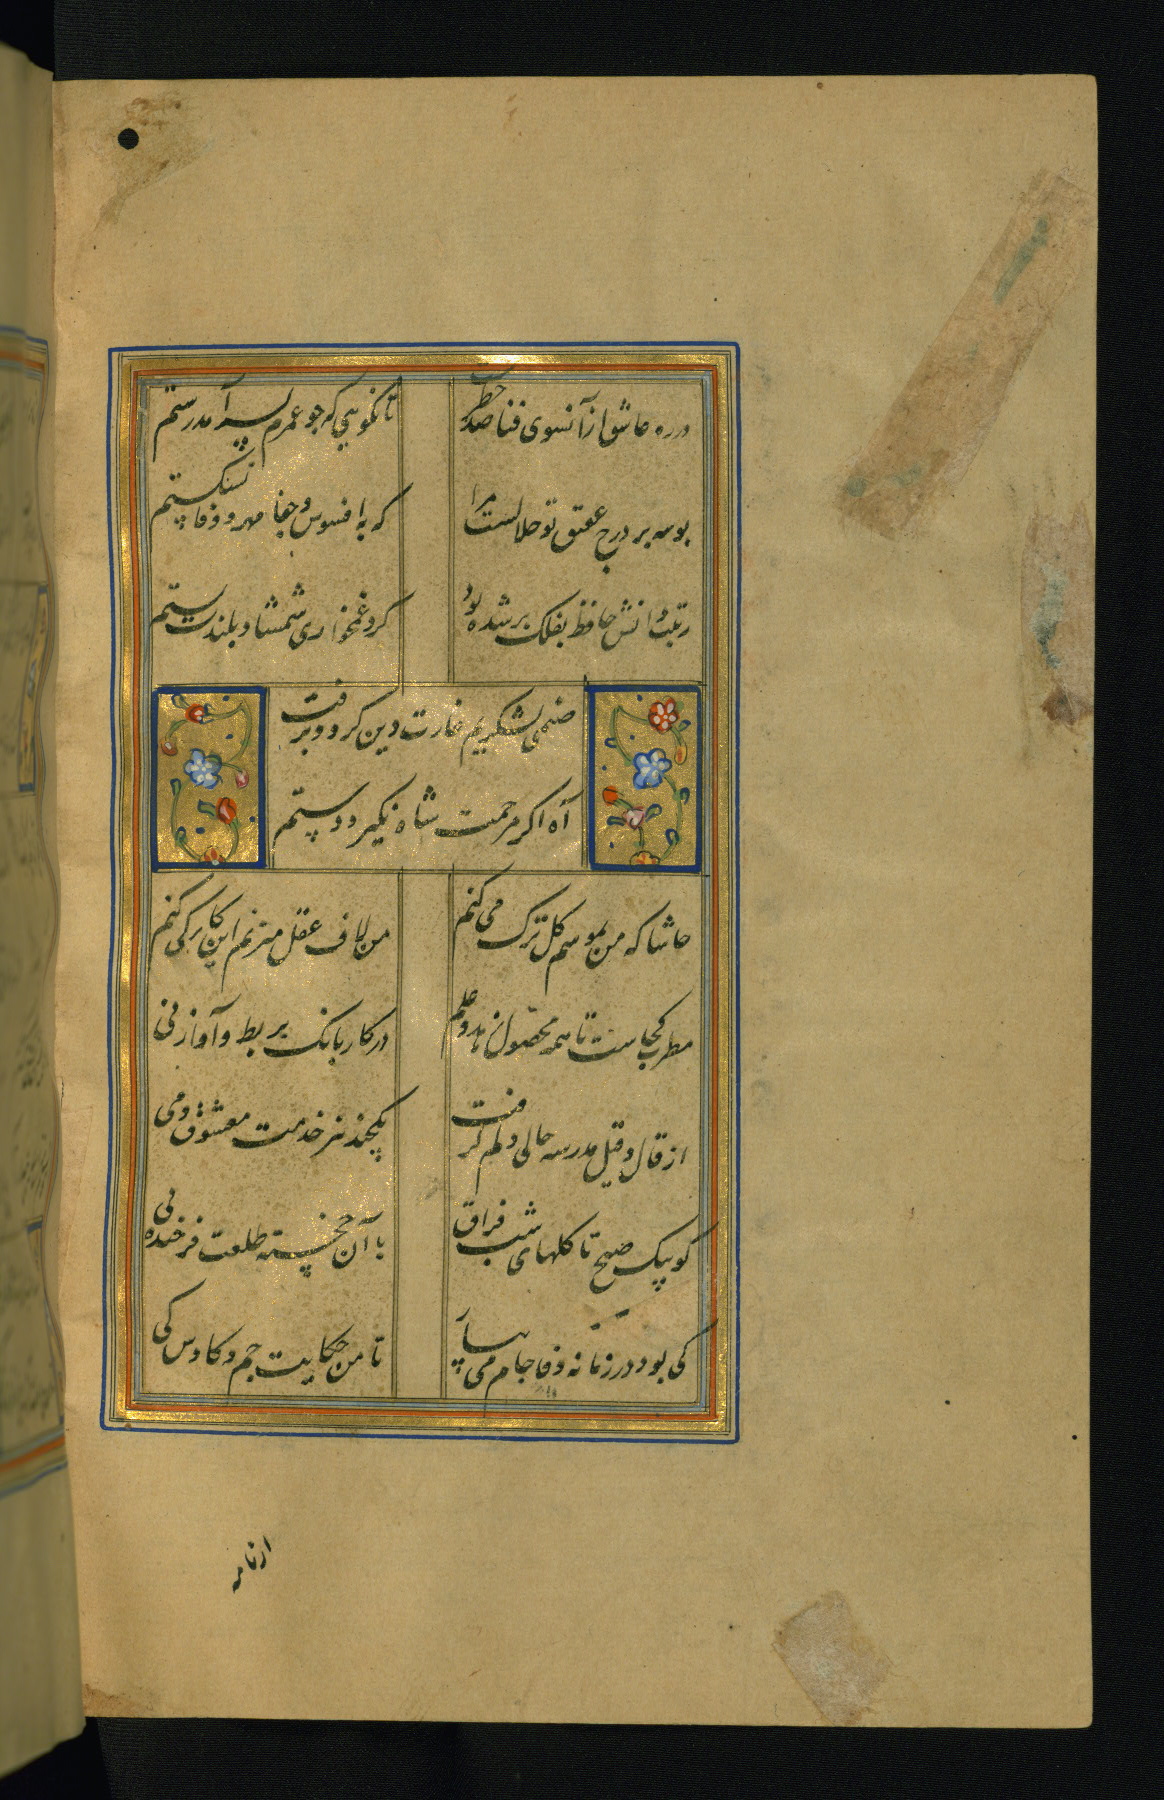 در ره عاشق از آنسوی فنا صد خطر تا نکوهی که چو عمرم بسر آمد رستم
بوسه بر درج عقیق تو حلالست مرا که به افسوس و جفا مهر و وفا نشکستم
رتبت دانش حافظ بفلک بر شده بود کرد غمخواری شمشاد بلندت پستم
صنمی لشکریم غارت دین کرد و برفت
آه اگر مرحمت شاه نگیرد دستم
حاشا که من بموسم گل ترک می کنم من لاف عقل میزنم این کار کی کنم
مطرب کجاست تا همه محصول زهد و علم در کار بانک بربط و آواز نی
از قال و قیل مدرسه حالی دلم گرفت یکچند نیز خدمت معشوق و می
کو پیک صبح تا گلهای شب فراق با آن خجسته طلعت فرخنده پی
کی بود در زمانه وفا جام می بیار تا من حکایت جم و کاوس کی
از نامه